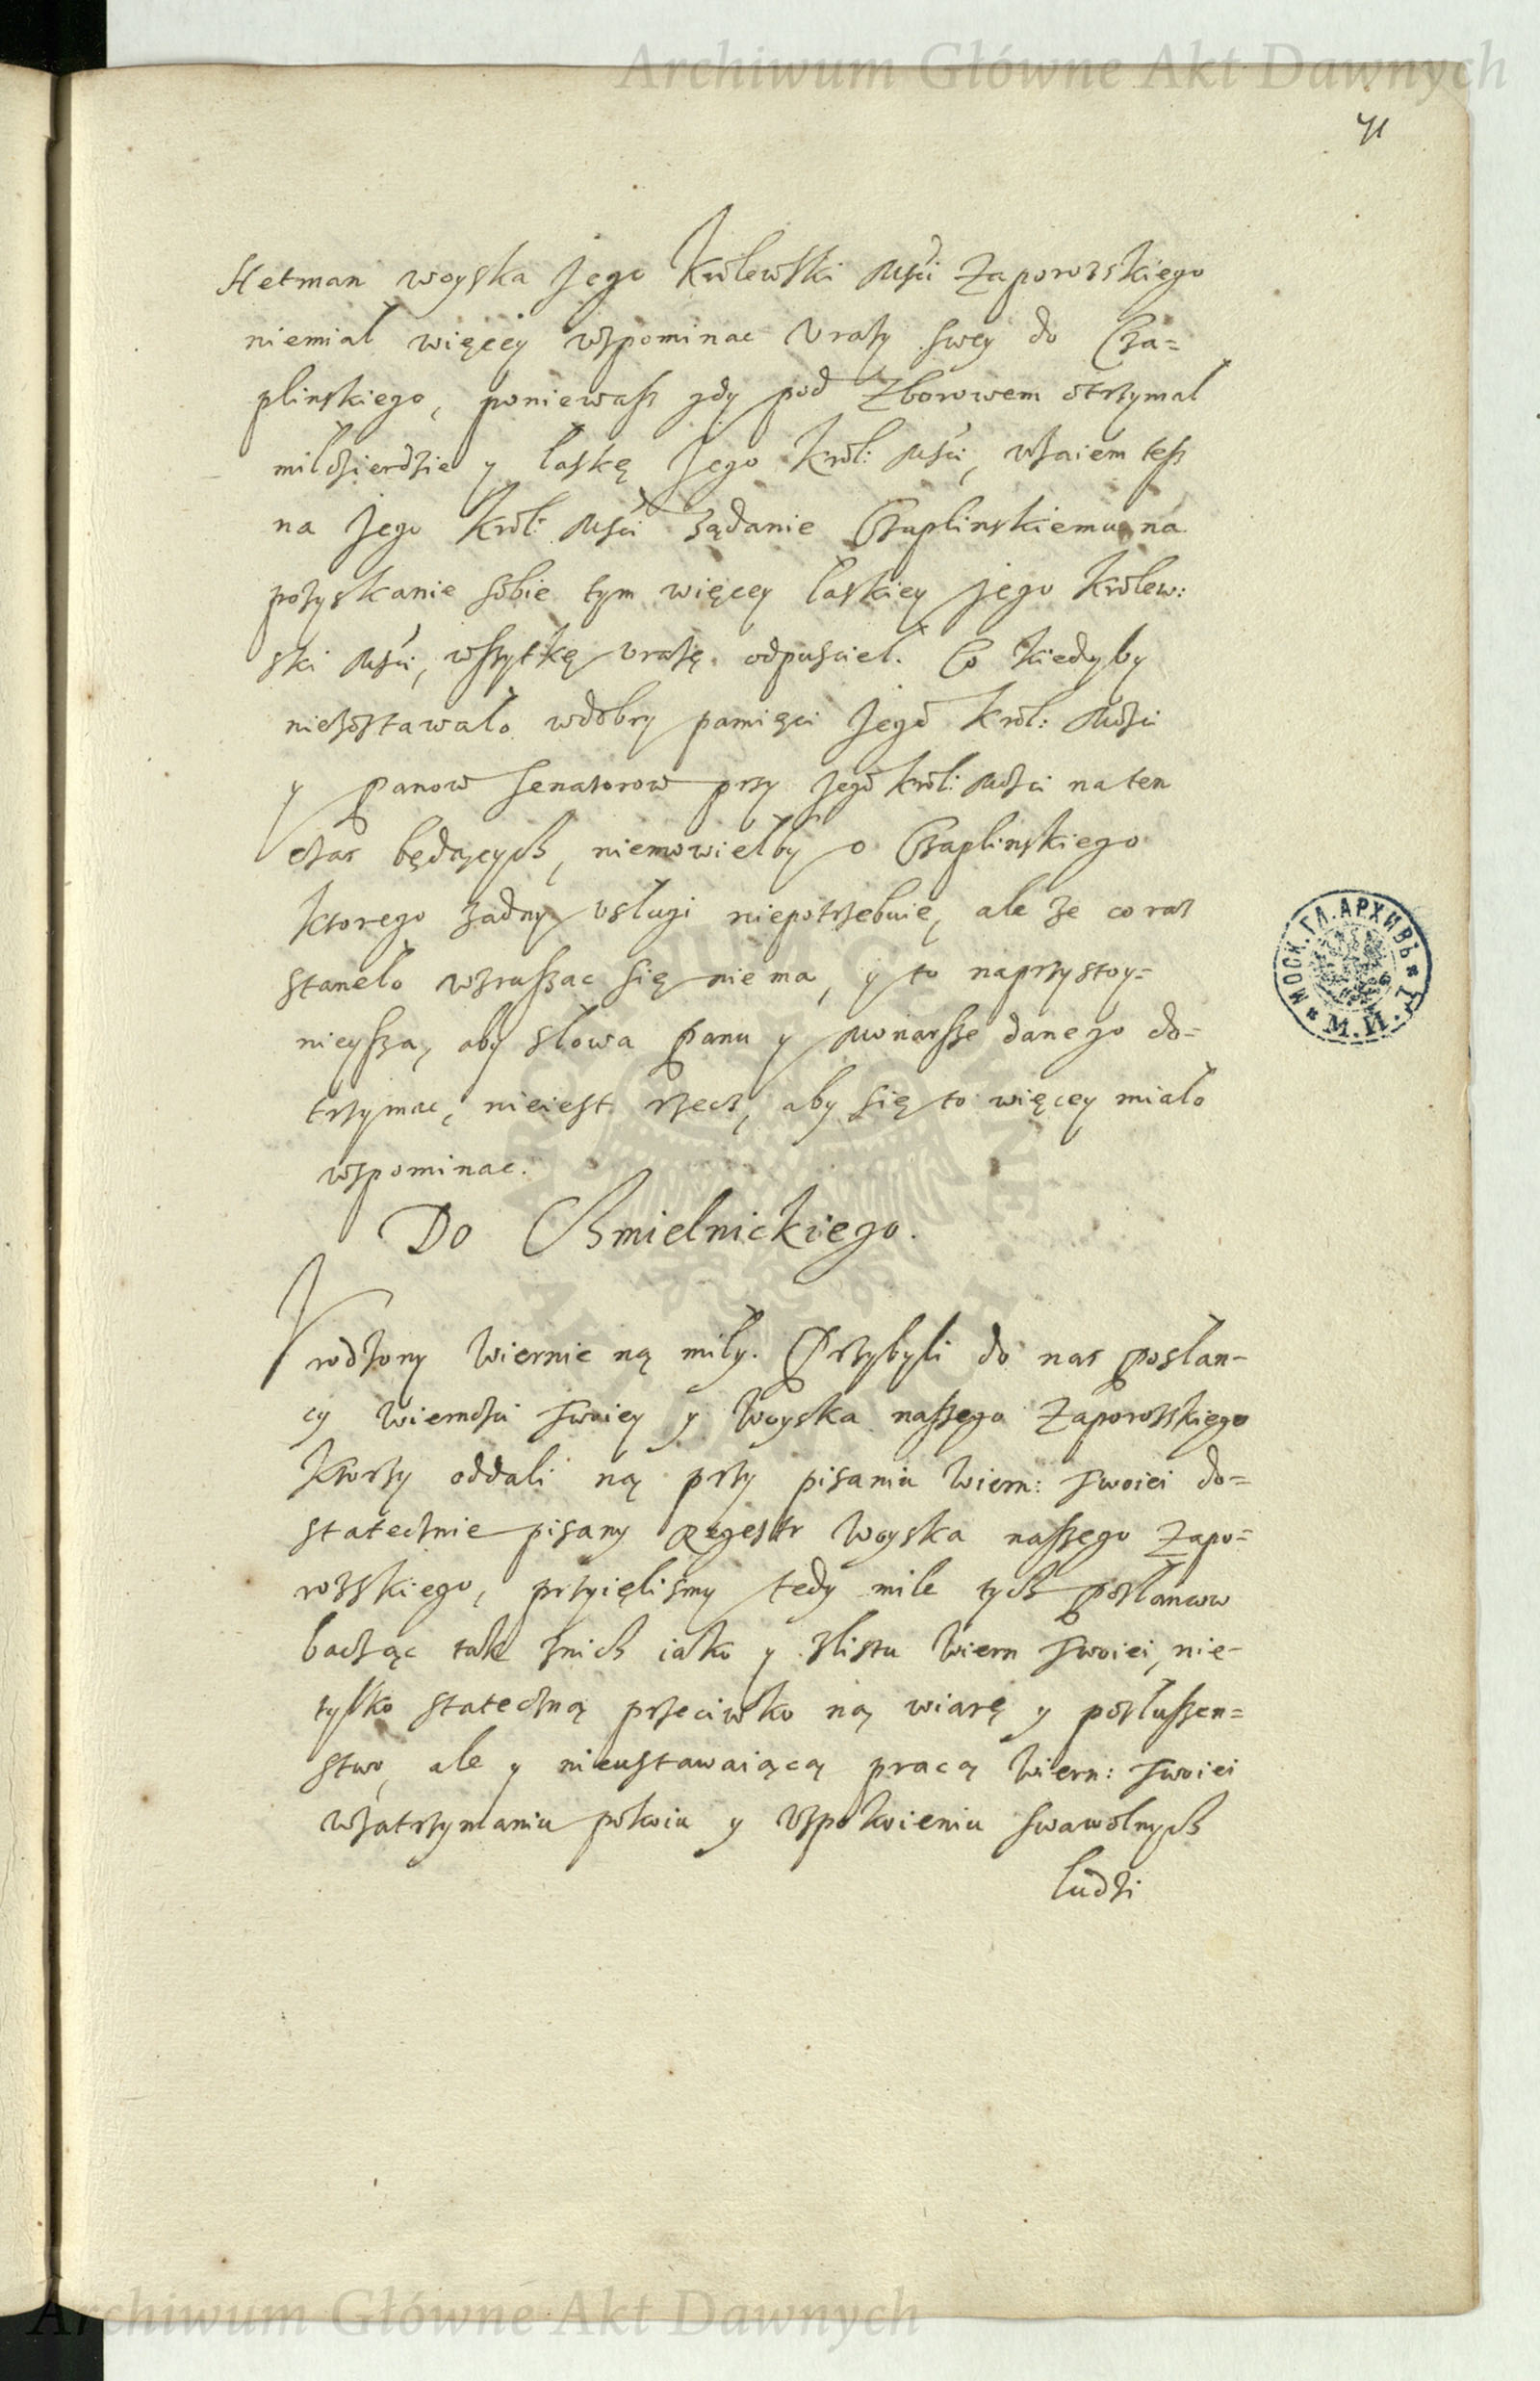 Archiwum Główne Akt Dawnych
71
Hetman woyska Jego Krolewski Mści Zaporozskiego
niemiał więcey wspominac Urazy swey do Cza=
plinskiego, poniewasz gdy pod Zborowem otrzymał
miłosierdzie y łaskę Jego Krol: Mści, wzaiem tesz
na Jego Krol: Mści ządanie Czaplinskiemu na
pozyskanie sobie tym więcey łaskiey Jego Krolew:
ski Mści, wszytkę urazę odpusciel. Co kiedyby
niezostawało wdobry pamięci Jego Krol: Mości
y Panow Senatorow przy Jego Krol: Mości na ten
czas będących, niemowielby o Czaplinskiego
ktorego zadny usługi niepotrzebuie, ale ze co raz
staneło wzruszac się nie ma, y to naprzystoy=
nieysza, aby słowa Panu y Monarsze danego do=
trzymac, nieiest rzecz, aby się to więcey miało
wspominac.
Do Chmielnickiego.
Urodzony Wiernie ną miły. Przybyli do nas Posłan-
cy Wiernosci Twoiey y Woyska naszego Zaporozskiego
Ktorzy oddali ną przy pisaniu Wiern: Twoiei do=
statecznie pisany Regestr Woyska naszego Zapo=
rozskiego, przyięlismy tedy mile tych Posłancow
bacząc tak znich iako y zlistu Wiern Twoiei, nie-
tylko stateczną przeciwko ną wiarę y posłuszen=
stwo, ale y nieustawaiącą pracą Wiern: Twoiei
wzatrzymaniu pokoiu y Uspokoieniu swawolnych
ludzi
МОСК. ГЛ. АРХИВЪ
М. И. Д.
ARCHIWUM GŁÓWNE AKT DAWNYCH
Archiwum Główne Akt Dawnych